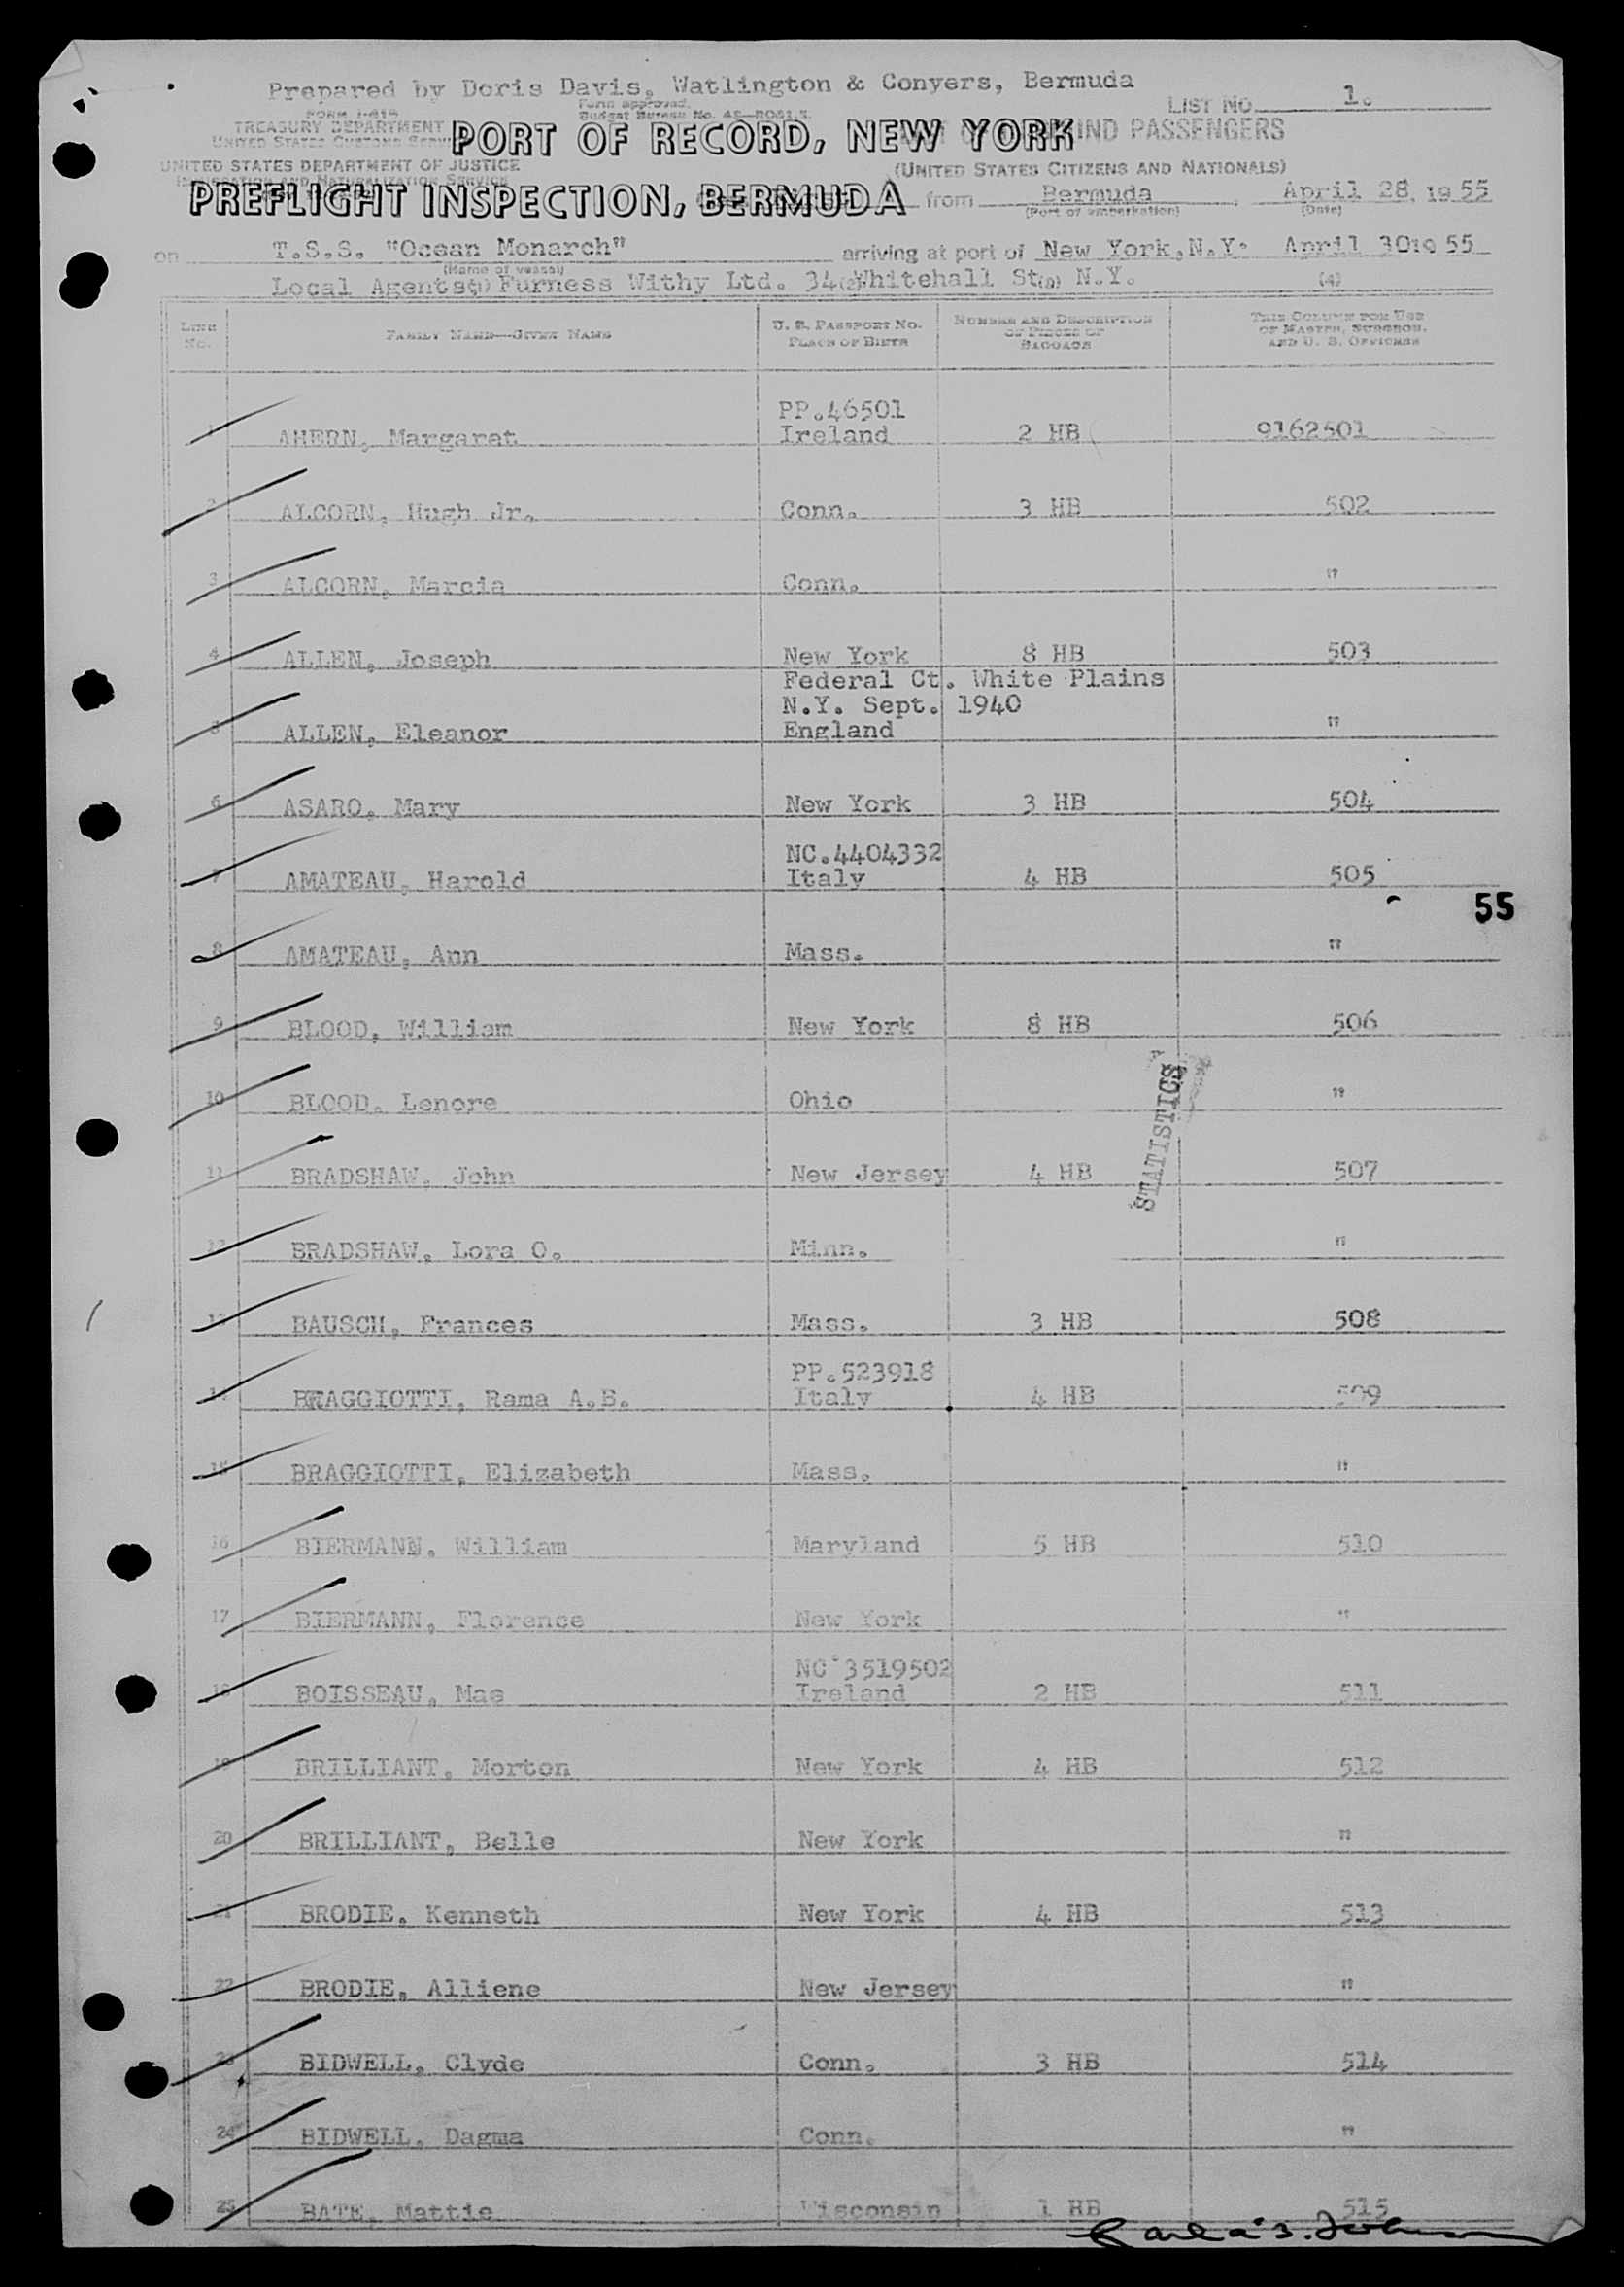 Prepared by Doris Davis, Watlington & Conyers, Bermuda
LIST NO. 1.
FORM I-415
Form approved.
Budget Bureau No.
TREASURY DEPARTMENT
UNITED STATES CUSTOMS SERVICE
PORT OF RECORD, NEW YORK
IND PASSENGERS
UNITED STATES DEPARTMENT OF JUSTICE
(UNITED STATES CITIZENS AND NATIONALS)
IMMIGRATION AND NATURALIZATION SERVICE
PREFLIGHT INSPECTION, BERMUDA from Bermuda, April 28, 1955
(Port of embarkation) (Date)
on T.S.S. "Ocean Monarch" arriving at port of New York, N.Y. April 30 19 55
(Name of vessel)
Local Agents (1) Furness Withy Ltd. 34 (2) Whitehall St. (3) N.Y. (4)
LINE NO. FAMILY NAME—GIVEN NAME U. S. PASSPORT NO. PLACE OF BIRTH NUMBER AND DESCRIPTION OF PIECES OF BAGGAGE THIS COLUMN FOR USE OF MASTER, SURGEON, AND U. S. OFFICERS
PP.46501
1 AHERN, Margaret Ireland 2 HB 9162501
2 ALCORN, Hugh Jr. Conn. 3 HB 502
3 ALCORN, Marcia Conn. "
4 ALLEN, Joseph New York 8 HB 503
Federal Ct. White Plains
N.Y. Sept. 1940
5 ALLEN, Eleanor England "
6 ASARO, Mary New York 3 HB 504
NC.4404332
7 AMATEAU, Harold Italy 4 HB 505
55
8 AMATEAU, Ann Mass. "
9 BLOOD, William New York 8 HB 506
10 BLOOD, Lenore Ohio "
STATISTICS
11 BRADSHAW, John New Jersey 4 HB 507
12 BRADSHAW, Lora O. Minn. "
13 BAUSCH, Frances Mass. 3 HB 508
PP.523918
14 BRAGGIOTTI, Rama A.B. Italy 4 HB 509
15 BRAGGIOTTI, Elizabeth Mass. "
16 BIERMANN, William Maryland 5 HB 510
17 BIERMANN, Florence New York "
NC.3519502
18 BOISSEAU, Mae Ireland 2 HB 511
19 BRILLIANT, Morton New York 4 HB 512
20 BRILLIANT, Belle New York "
21 BRODIE, Kenneth New York 4 HB 513
22 BRODIE, Alliene New Jersey "
23 BIDWELL, Clyde Conn. 3 HB 514
24 BIDWELL, Dagma Conn. "
25 BATE, Mattie Wisconsin 1 HB 515